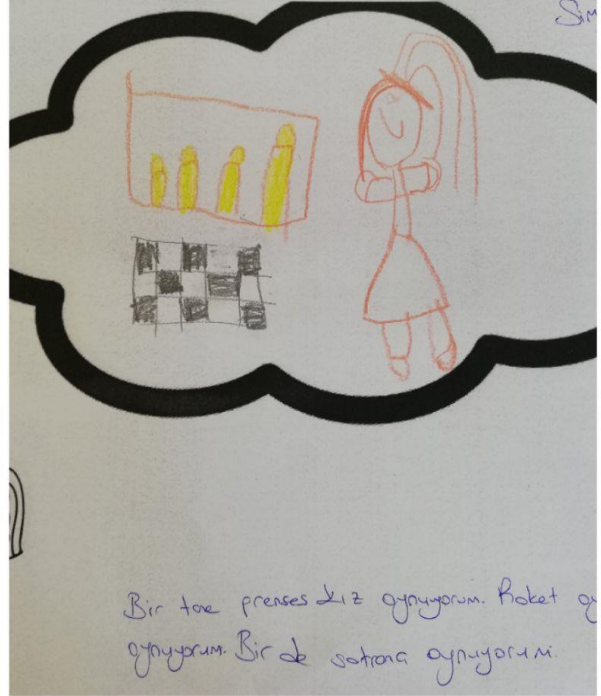 Bir tane prenses kız oynuyorum. Roket
oynuyorum. Bir de satranç oynuyorum.